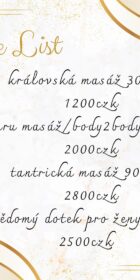 e List
královská masáž 30
1200czk
ru masáž/body2body
2000czk
tantrická masáž 90
2800czk
ědomý dotek pro ženy
2500czk